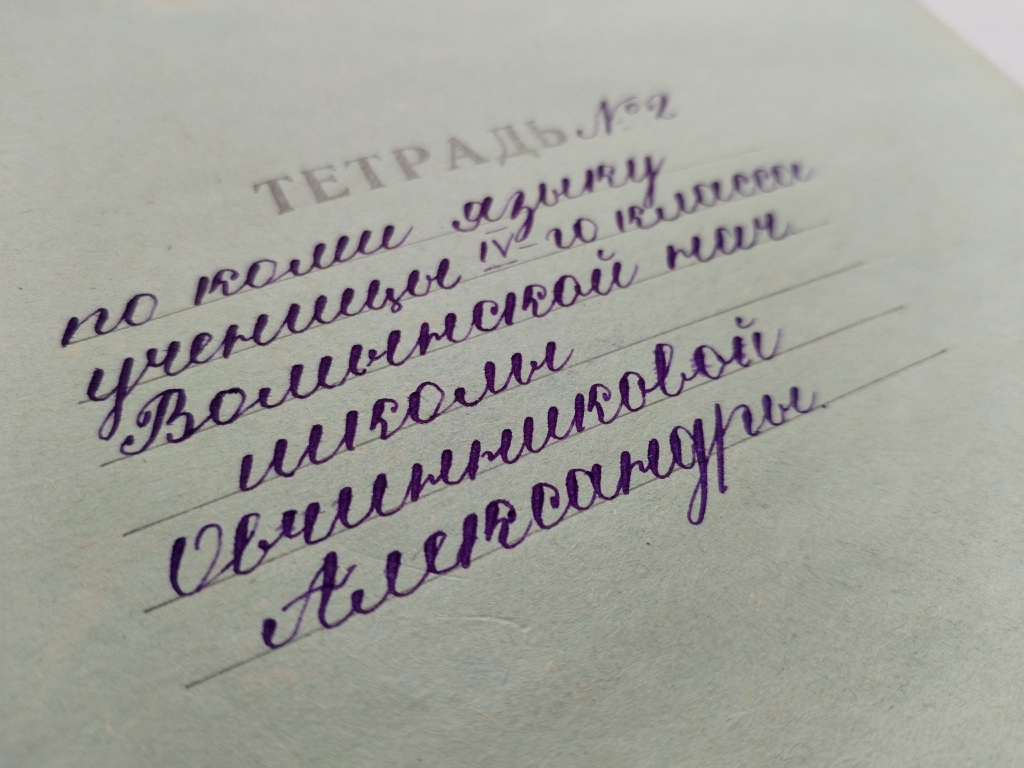 ТЕТРАДЬ №2
по коми языку
ученицы IV-го класса
Вольынской нач
школы
Овчинниковой
Александры.